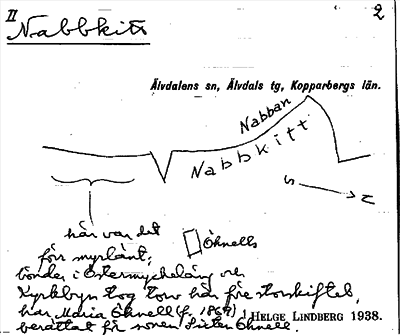 II
2
Nabbkitt
Älvdalens sn, Älvdals tg, Kopparbergs län.
Nabban
Nabbkitt
S N
här var det
förr myrlänt;
Öknells
bönder i Östermyckeläng och
Kyrkbyn tog torv här före storskiftet,
har Maria Öknell (f. 1869)
HELGE LINDBERG 1938.
berättat för sonen Öknell.